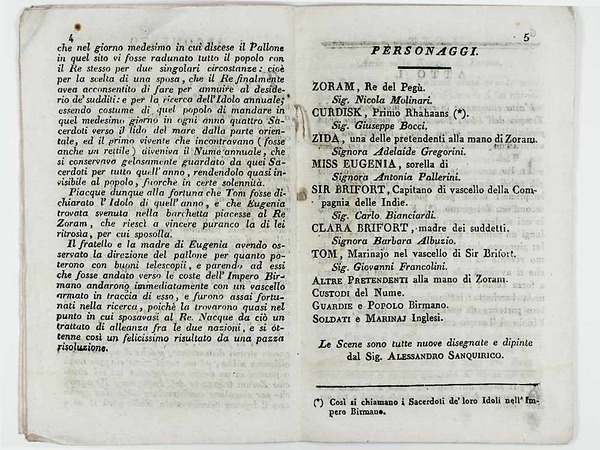 4
che nel giorno medesimo in cui discese il Pallone
in quel sito vi fosse radunato tutto il popolo con
il Re stesso per due singolari circostanze: cioè
per la scelta di una sposa, che il Re finalmente
avea acconsentito di fare per annuire al deside-
rio de' sudditi: e per la ricerca dell'Idolo annuale;
essendo costume di quel popolo di mandare in
quel medesimo giorno in ogni anno quattro Sa-
cerdoti verso il lido del mare dalla parte orien-
tale, ed il primo vivente che incontravano (fosse
anche un rettile) diveniva il Nume annuale, che
si conservava gelosamente guardato da quei Sa-
cerdoti per tutto quell'anno, rendendolo quasi in-
visibile al popolo, fuorchè in certe solennità.
Piacque dunque alla fortuna che Tom fosse di-
chiarato l'Idolo di quell'anno, e che Eugenia
trovata svenuta nella barchetta piacesse al Re
Zoram, che riescì a vincere puranco la di lei
ritrosia, per cui sposolla.
Il fratello e la madre di Eugenia avendo os-
servato la direzione del pallone per quanto po-
terono con buoni telescopii, e parendo ad essi
che fosse andato verso le coste dell'Impero Bir-
mano andarono immediatamente con un vascello
armato in traccia di esso, e furono assai fortu-
nati nella ricerca, poichè la trovarono quasi nel
punto in cui sposavasi al Re. Nacque da ciò un
trattato di alleanza fra le due nazioni, e si ot-
tenne così un felicissimo risultato da una pazza
risoluzione.
5
PERSONAGGI.
ZORAM, Re del Pegù.
Sig. Nicola Molinari.
CURDISK, Primo Rhahaans (*).
Sig. Giuseppe Bocci.
ZIDA, una delle pretendenti alla mano di Zoram.
Signora Adelaide Gregorini.
MISS EUGENIA, sorella di
Signora Antonia Pallerini.
SIR BRIFORT, Capitano di vascello della Com-
pagnia delle Indie.
Sig. Carlo Bianciardi.
CLARA BRIFORT, madre dei suddetti.
Signora Barbara Albuzio.
TOM, Marinajo nel vascello di Sir Brifort.
Sig. Giovanni Francolini.
ALTRE PRETENDENTI alla mano di Zoram.
CUSTODI del Nume.
GUARDIE e POPOLO Birmano.
SOLDATI e MARINAJ Inglesi.
Le Scene sono tutte nuove disegnate e dipinte
dal Sig. ALESSANDRO SANQUIRICO.
(*) Così si chiamano i Sacerdoti de' loro Idoli nell'Im-
pero Birmano.